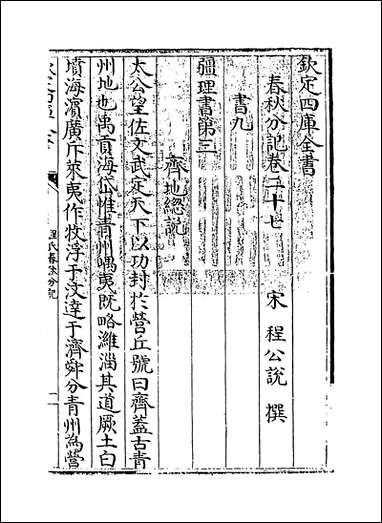 欽定四庫全書
春秋分記卷二十七
宋 程公說 撰
書九
疆理書第三
齊地總說
太公望佐文武定天下以功封於營丘號曰齊蓋古青
州地也禹貢海岱惟青州嵎夷既略濰淄其道厥土白
墳海濱廣斥萊夷作牧浮于汶達于濟舜分青州為營